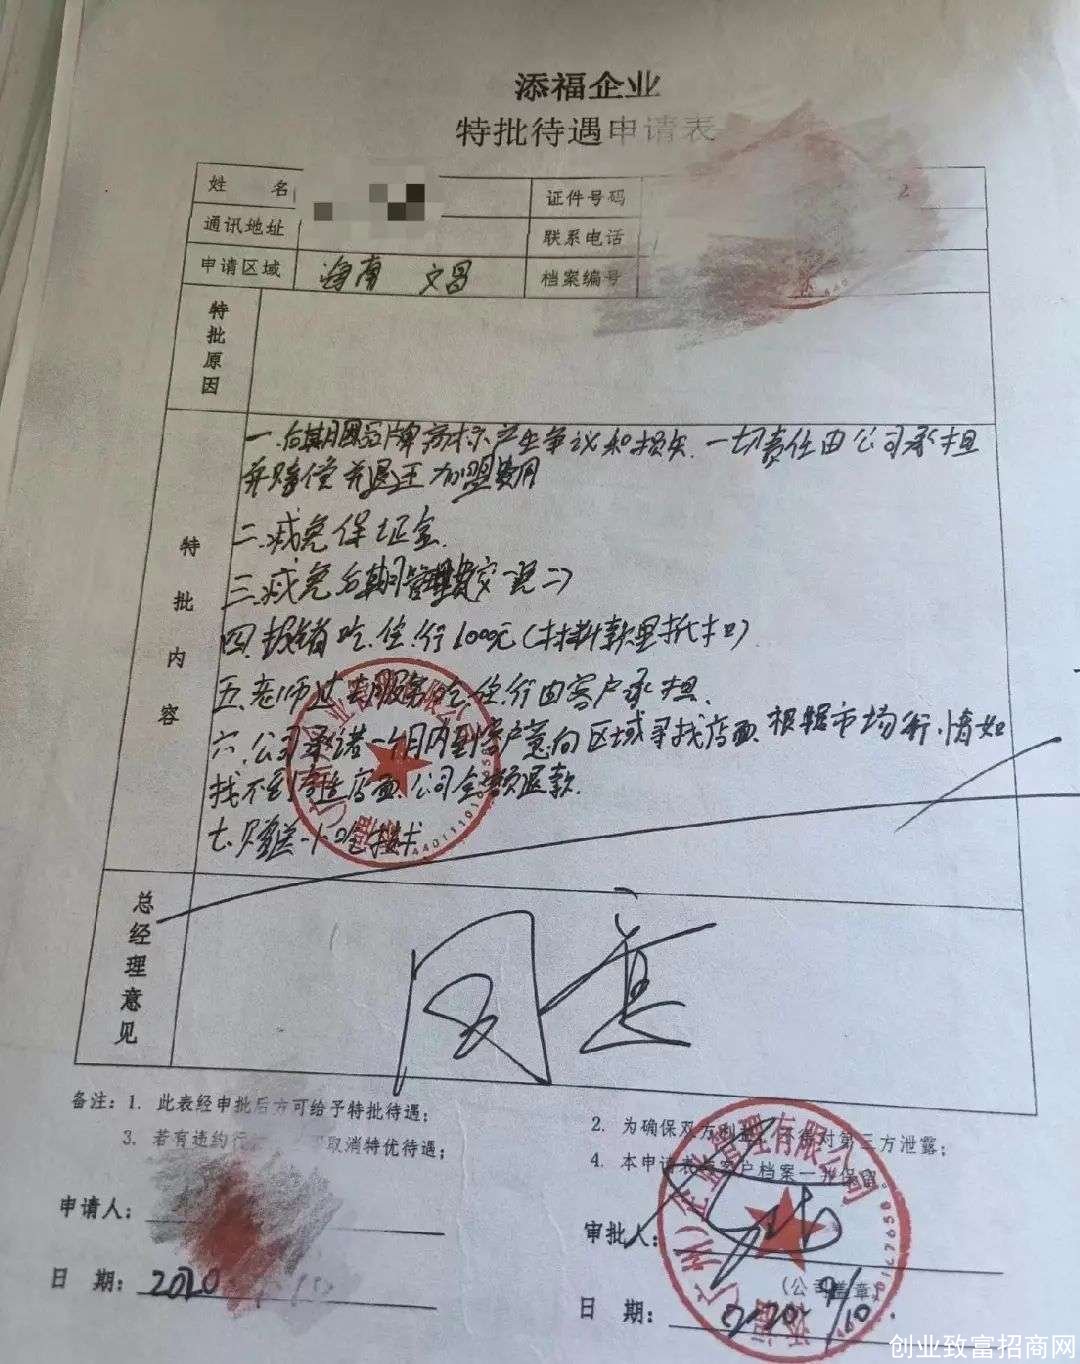 添福企业
特批待遇申请表
姓 名
证件号码
2
通讯地址
联系电话
申请区域
海南 文昌
档案编号
特批原因
特批内容
一.后期因品牌商标产生争议和损失.一切责任由公司承担
并赔偿并退还加盟费用
二.减免保证金.
三.减免后期管理费
四.报销吃.住.行1000元(材料款里抵扣)
五.老师过去服务吃.住.行由客户承担.
六.公司承诺一个月内到客户意向区域寻找店面.根据市场行.情如
找不到合适店面.公司全额退款.
七.赠送一个小吃技术
总经理意见
同意
备注：1. 此表经审批后方可给予特批待遇；
2. 为确保双方利益，不得对第三方泄露；
3. 若有违约行 取消特优待遇；
4. 本申请表与客户档案一并保留。
申请人：
审批人：
(公司盖章)
日 期：2020
日 期：2020 9/10
(广州)企业管理有限公司
创业致富招商网